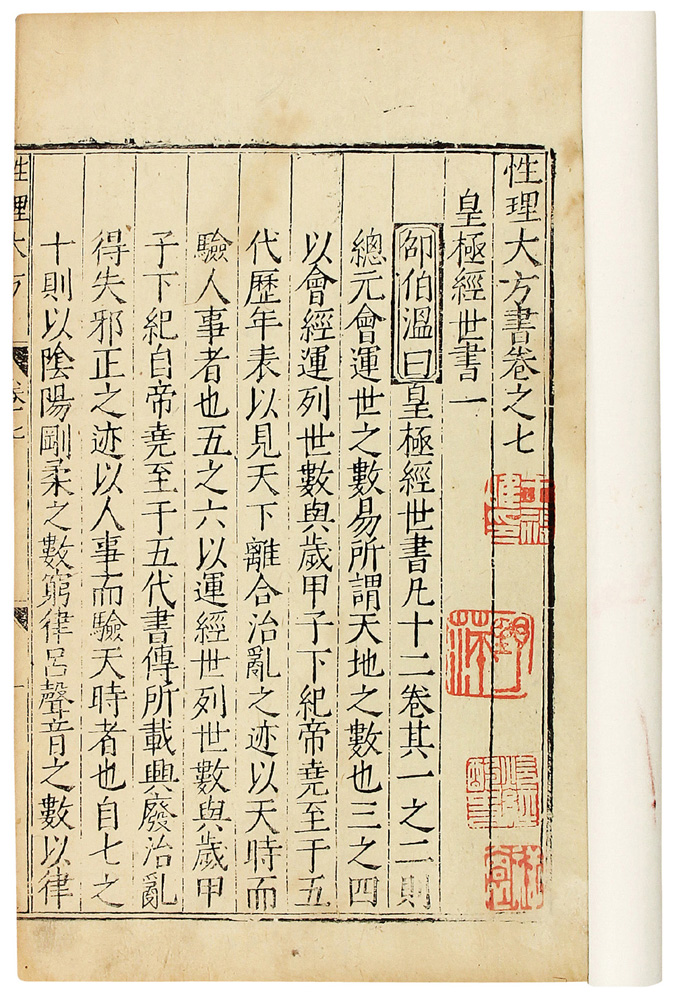 性理大方書卷之七
皇極經世書一
邵伯溫曰皇極經世書凡十二卷其一之二則
總元會運世之數易所謂天地之數也三之四
以會經運列世數與歲甲子下紀帝堯至于五
代歷年表以見天下離合治亂之迹以天時而
驗人事者也五之六以運經世列世數與歲甲
子下紀自帝堯至于五代書傳所載興廢治亂
得失邪正之迹以人事而驗天時者也自七之
十則以陰陽剛柔之數窮律呂聲音之數以律
性理大方
卷七